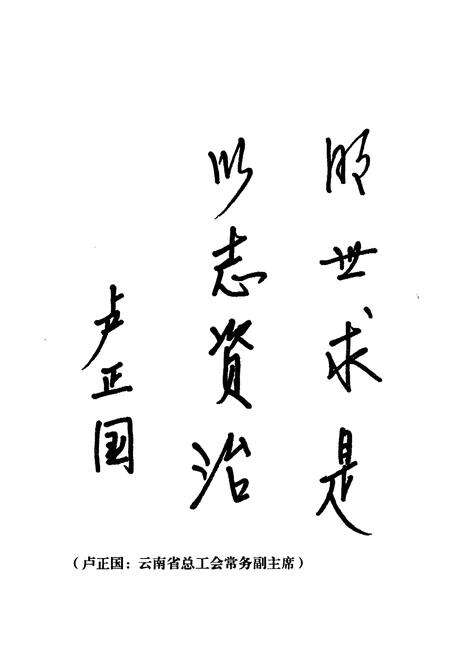 明世求是
以志资治
卢正国
(卢正国：云南省总工会常务副主席)